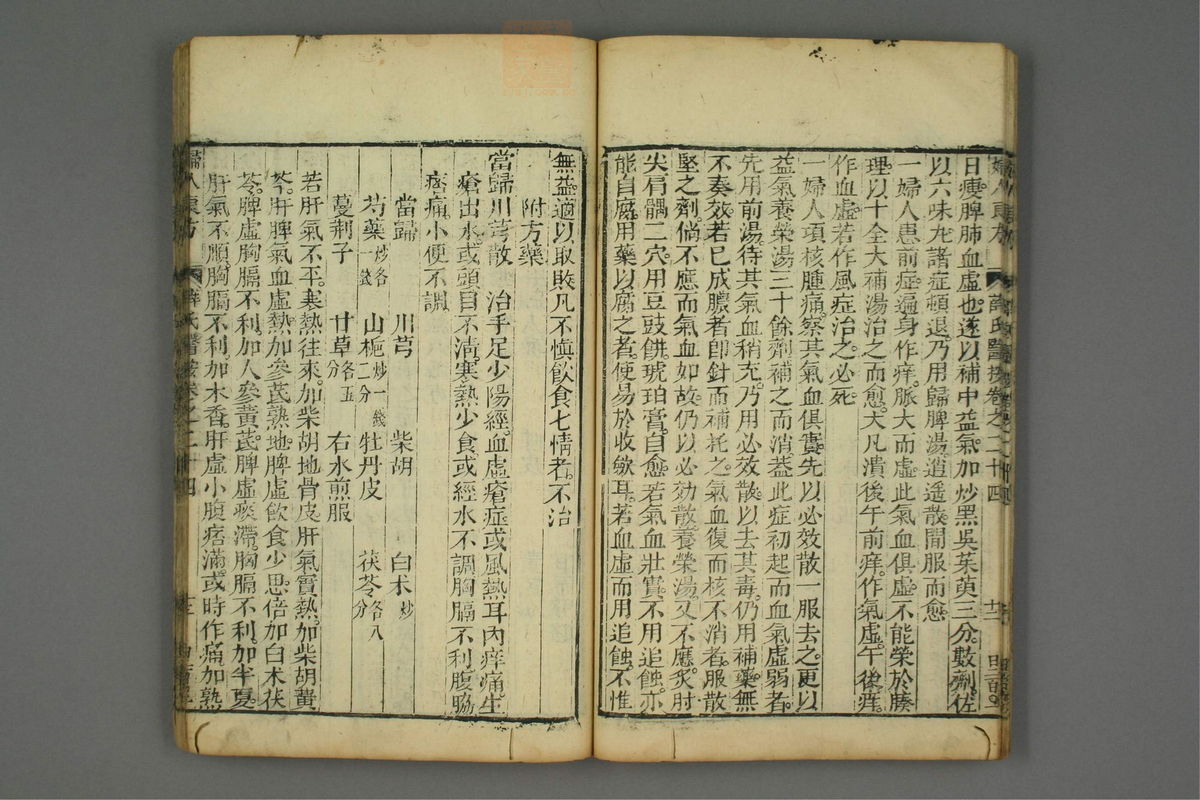 日瘐脾肺血虛也遂以補中益氣加炒黑吳茱萸三分數劑佐
以六味丸諸症頓退乃用歸脾湯逍遥散間服而愈
一婦人患前症遍身作痒脈大而虛此氣血俱虛不能榮於腠
理以十全大補湯治之而愈大凡潰後午前痒作氣虛午後痒
作血虛若作風症治之必死
一婦人項核腫痛察其氣血俱實先以必效散一服去之更以
益氣養榮湯三十餘劑補之而消蓋此症初起而血氣虛弱者
先用前湯待其氣血稍充乃用必效散以去其毒仍用補藥無
不奏效若已成膿者卽針而補托之氣血復而核不消者服散
堅之劑倘不應而氣血如故仍以必効散養榮湯又不應灸肘
尖肩髃二穴用豆豉餅琥珀膏自愈若氣血壯實不用追蝕亦
能自腐用藥以腐之者使易於收歛耳若血虛而用追蝕不惟
無益適以取敗凡不慎飮食七情者不治
附方藥
當歸川芎散 治手足少陽經血虛瘡症或風熱耳內痒痛生
瘡出水或頭目不清寒熱少食或經水不調胸膈不利腹脇
痞痛小便不調
當歸 川芎 柴胡 白术炒
芍藥炒各一錢 山梔炒一錢二分 牡丹皮 茯苓各八分
蔓荆子 甘草各五分 右水煎服
若肝氣不平寒熱往來加柴胡地骨皮肝氣實熱加柴胡黃
芩肝脾氣血虛熱加參芪熟地脾虛飮食少思倍加白术茯
苓脾虛胸膈不利加人參黃芪脾虛痰滯胸膈不利加半夏
肝氣不順胸膈不利加木香肝虛小腹痞滿或時作痛加熟